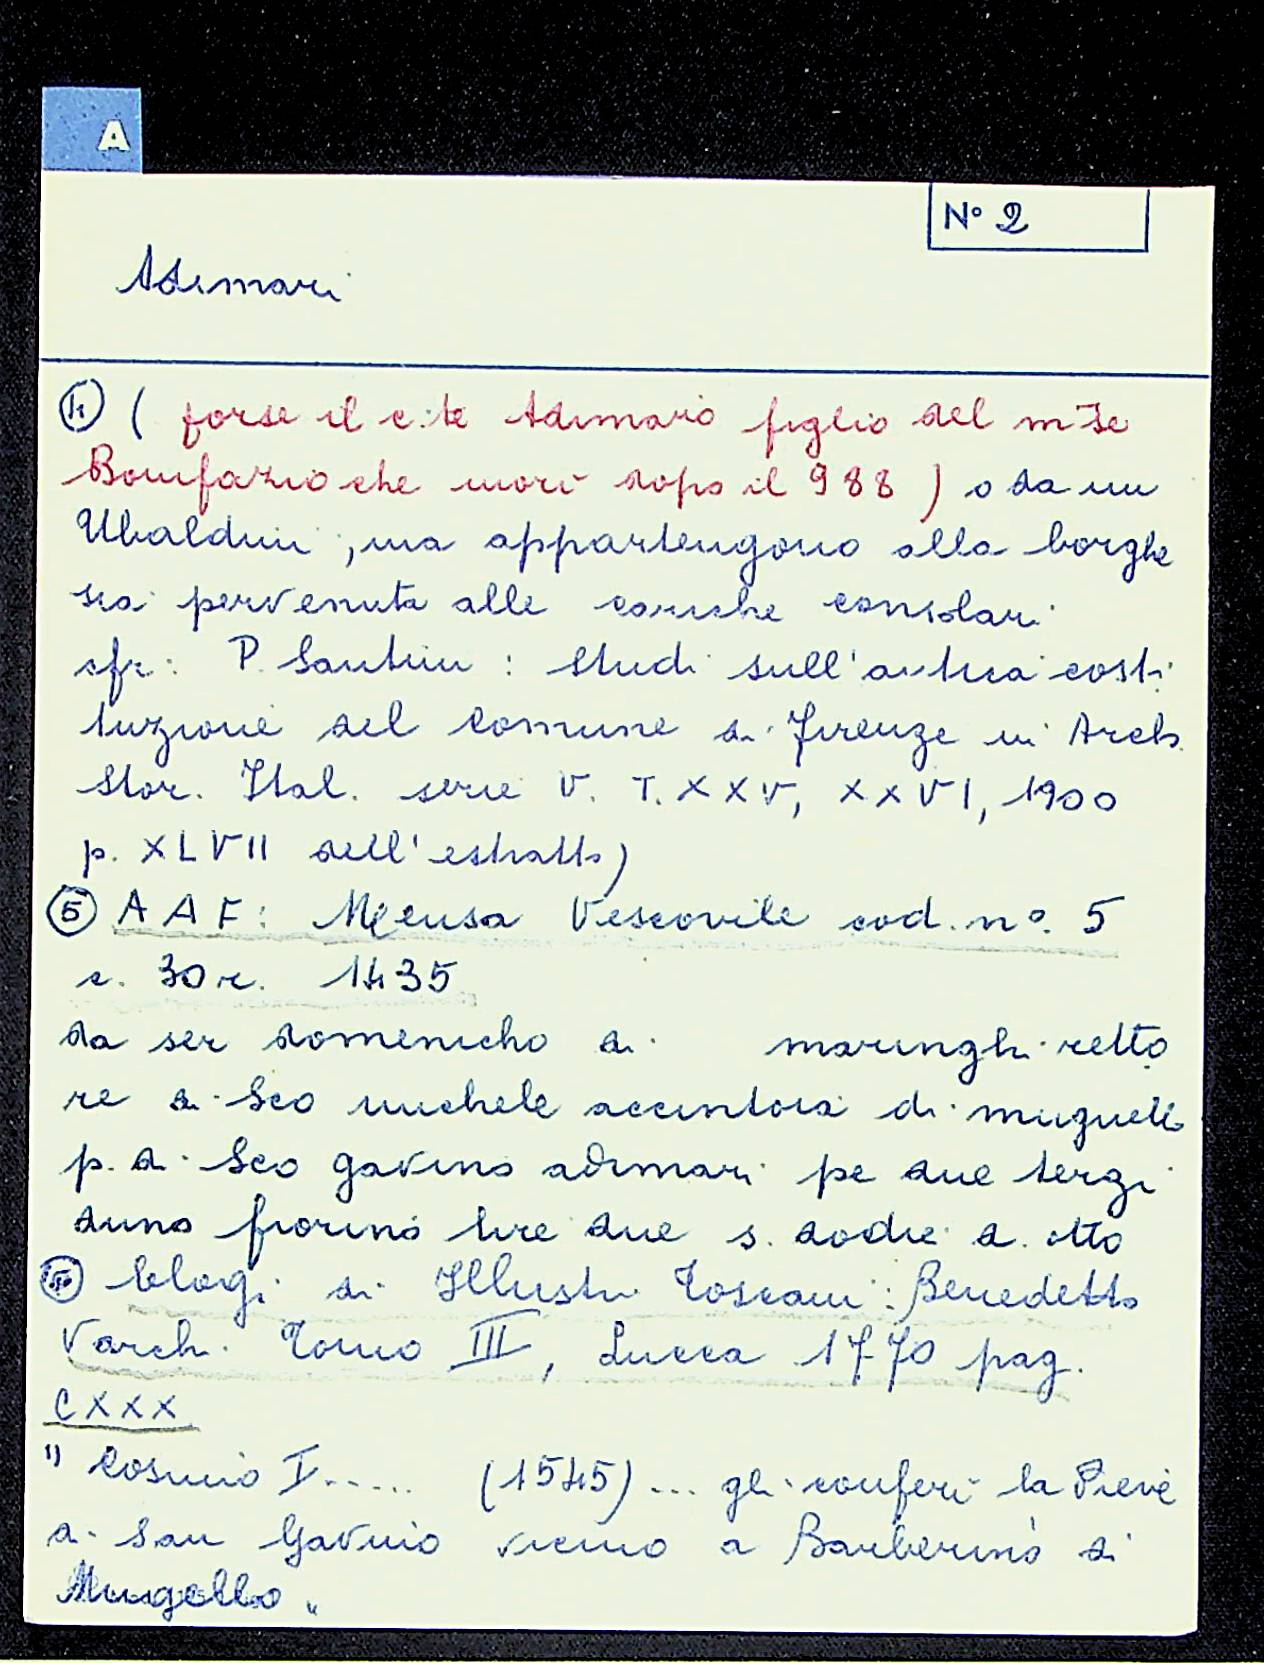 A
N° 2
Adimari
④ ( forse il c.te Adimaro figlio del m.se
Bonifazio che morì dopo il 988 ) o da un
Ubaldini, ma appartengono alla borghe
sia pervenuta alle cariche consolari
cfr: P. Santini : Studi sull'antica costi
tuzione del Comune di Firenze in Arch.
Stor. Ital. serie V. T. XXV, XXVI, 1900
p. XLVII dell'estratto)
⑤ A A F: Mensa Vescovile cod. n°. 5
c. 30r. 1435
da ser domenicho di maringhi retto
re di Sco michele accintoia di mugello
p. di Sco gavino adimari pe due terzi
duno fiorino lire due s. dodici d. otto
Elogi di Illustri Toscani: Benedetto
Varchi. Tomo III, Lucca 1770 pag.
CXXX
" Cosimo I..... (1545)... gli conferì la Pieve
di San Gavino vicino a Barberino di
Mugello "